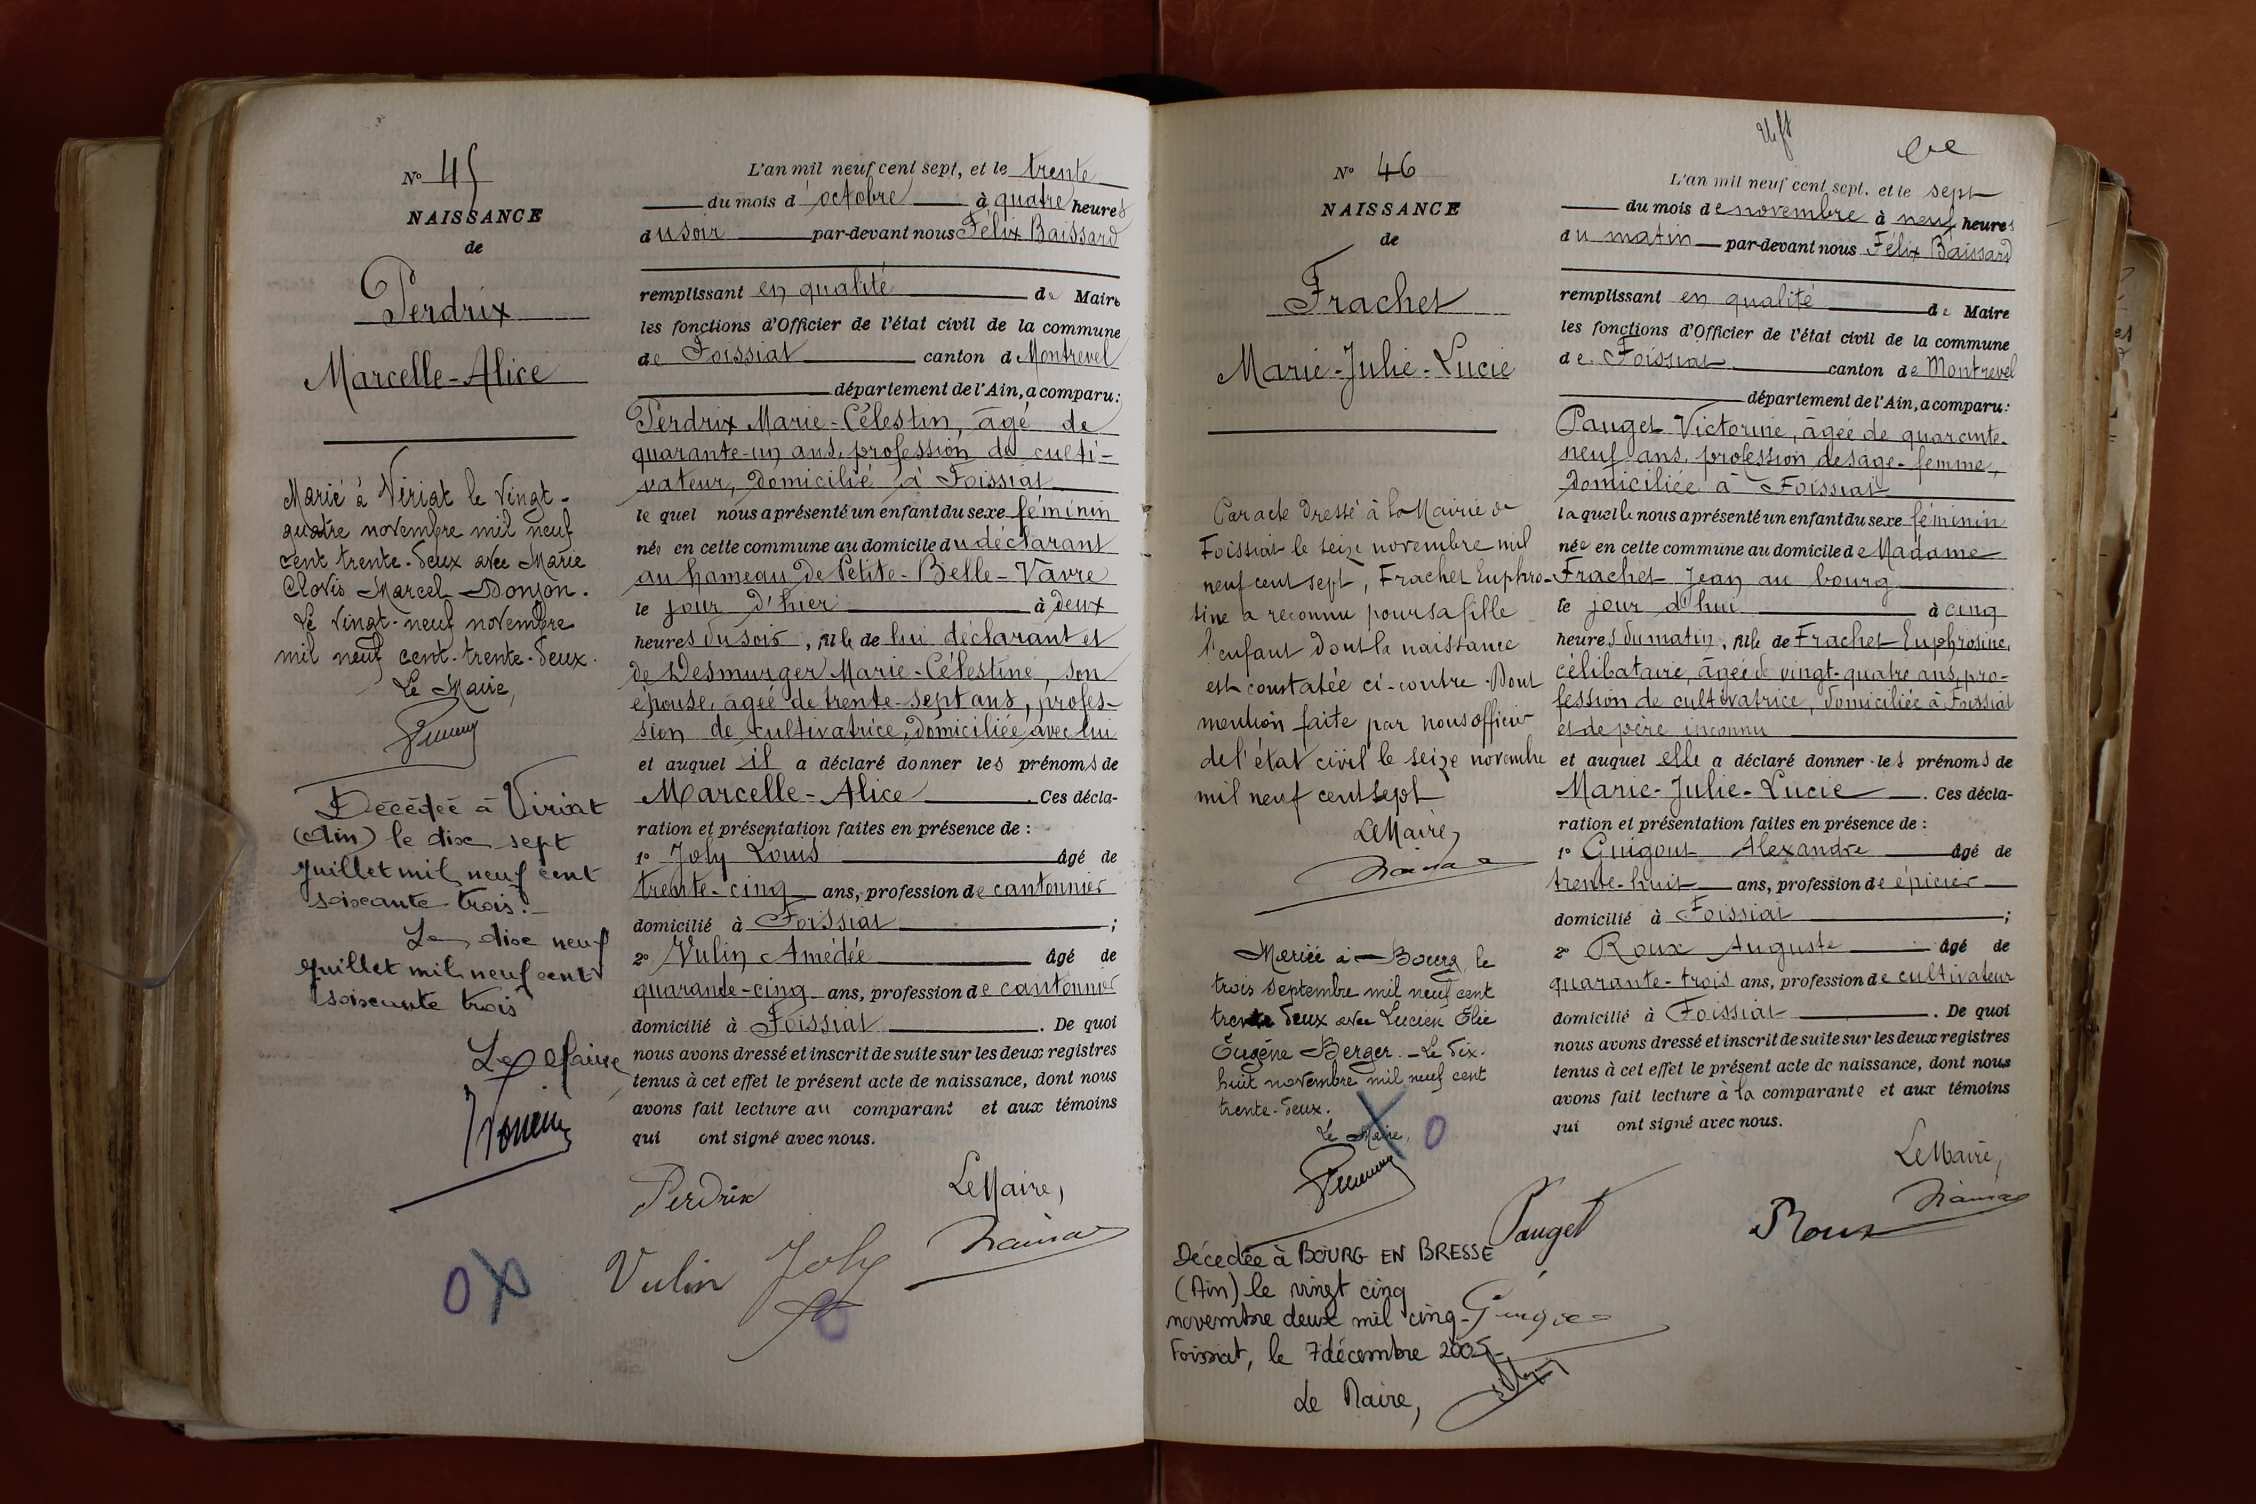 N° 45
NAISSANCE
de
Perdrix
Marcelle-Alice
Marié à Viriat le vingt-
quatre novembre mil neuf
cent trente-deux avec Marie
Clovis Marcel Donjon.
Le vingt-neuf novembre
mil neuf cent-trente-deux.
Le Maire,
Décédée à Viriat
(Ain) le dix sept
juillet mil neuf cent
soixante-trois.-
Le dix neuf
juillet mil neuf cent
soixante trois
Le Maire
L'an mil neuf cent sept, et le trente
du mois d'octobre à quatre heures
du soir par-devant nous Félix Baissard
remplissant en qualité de Maire
les fonctions d'Officier de l'état civil de la commune
de Foissiat canton d Montrevel
département de l'Ain, a comparu:
Perdrix Marie-Célestin, âgé de
quarante-un ans, profession de culti-
vateur, domicilié à Foissiat
le quel nous a présenté un enfant du sexe féminin
née en cette commune au domicile du déclarant
au hameau de Petite-Belle-Vavre
le jour d'hier à deux
heures du soir, fille de lui déclarant et
de Desmurger Marie-Célestine, son
épouse, âgée de trente-sept ans, profes-
sion de cultivatrice, domiciliée avec lui
et auquel il a déclaré donner les prénoms de
Marcelle-Alice. Ces décla-
ration et présentation faites en présence de :
1° Joly Louis âgé de
trente-cinq ans, profession de cantonnier
domicilié à Foissiat ;
2° Vulin Amédée âgé de
quarante-cinq ans, profession de cantonnier
domicilié à Foissiat. De quoi
nous avons dressé et inscrit de suite sur les deux registres
tenus à cet effet le présent acte de naissance, dont nous
avons fait lecture au comparant et aux témoins
qui ont signé avec nous.
Perdrix Le Maire,
Vulin Joly
N° 46
NAISSANCE
de
Frachet
Marie-Julie-Lucie
Par acte dressé à la Mairie de
Foissiat le seize novembre mil
neuf cent sept, Frachet Euphro-
sine a reconnu pour sa fille
l'enfant dont la naissance
est constatée ci-contre. Dont
mention faite par nous officier
de l'état civil le seize novembre
mil neuf cent sept
Le Maire,
Mariée à Bourg, le
trois septembre mil neuf cent
trente deux avec Lucien Élie
Eugène Berger.-Le dix-
huit novembre mil neuf cent
trente-deux.
Le Maire,
Décédée à BOURG EN BRESSE
(Ain) le vingt cinq
novembre deux mil cinq-
Foissiat, le 7 décembre 2005-
Le Maire,
L'an mil neuf cent sept. et le sept
du mois de novembre à neuf heures
du matin par-devant nous Félix Baissard
remplissant en qualité de Maire
les fonctions d'Officier de l'état civil de la commune
de Foissiat canton de Montrevel
département de l'Ain, a comparu:
Pauget Victorine, âgée de quarante-
neuf ans, profession de sage-femme,
domiciliée à Foissiat
laquelle nous a présenté un enfant du sexe féminin
née en cette commune au domicile de Madame
Frachet Jean au bourg
le jour d'hui à cinq
heures du matin, fille de Frachet Euphrosine,
célibataire, âgée de vingt-quatre ans, pro-
fession de cultivatrice, domiciliée à Foissiat
et de père inconnu
et auquel elle a déclaré donner les prénoms de
Marie-Julie-Lucie. Ces décla-
ration et présentation faites en présence de :
1° Guigout Alexandre âgé de
trente-huit ans, profession de épicier
domicilié à Foissiat ;
2° Roux Auguste âgé de
quarante-trois ans, profession de cultivateur
domicilié à Foissiat. De quoi
nous avons dressé et inscrit de suite sur les deux registres
tenus à cet effet le présent acte de naissance, dont nous
avons fait lecture à la comparante et aux témoins
qui ont signé avec nous.
Le Maire,
Pauget Roux